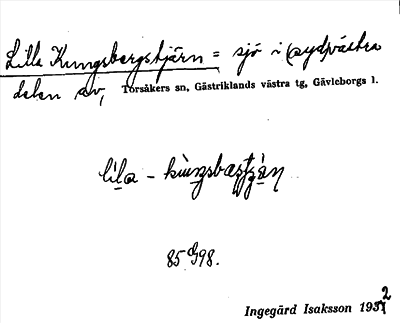 Lilla Kungsbergstjärn = sjö i sydvästra
delen av, Torsåkers sn, Gästriklands västra tg, Gävleborgs l.
85 d 98.
Ingegärd Isaksson 1932